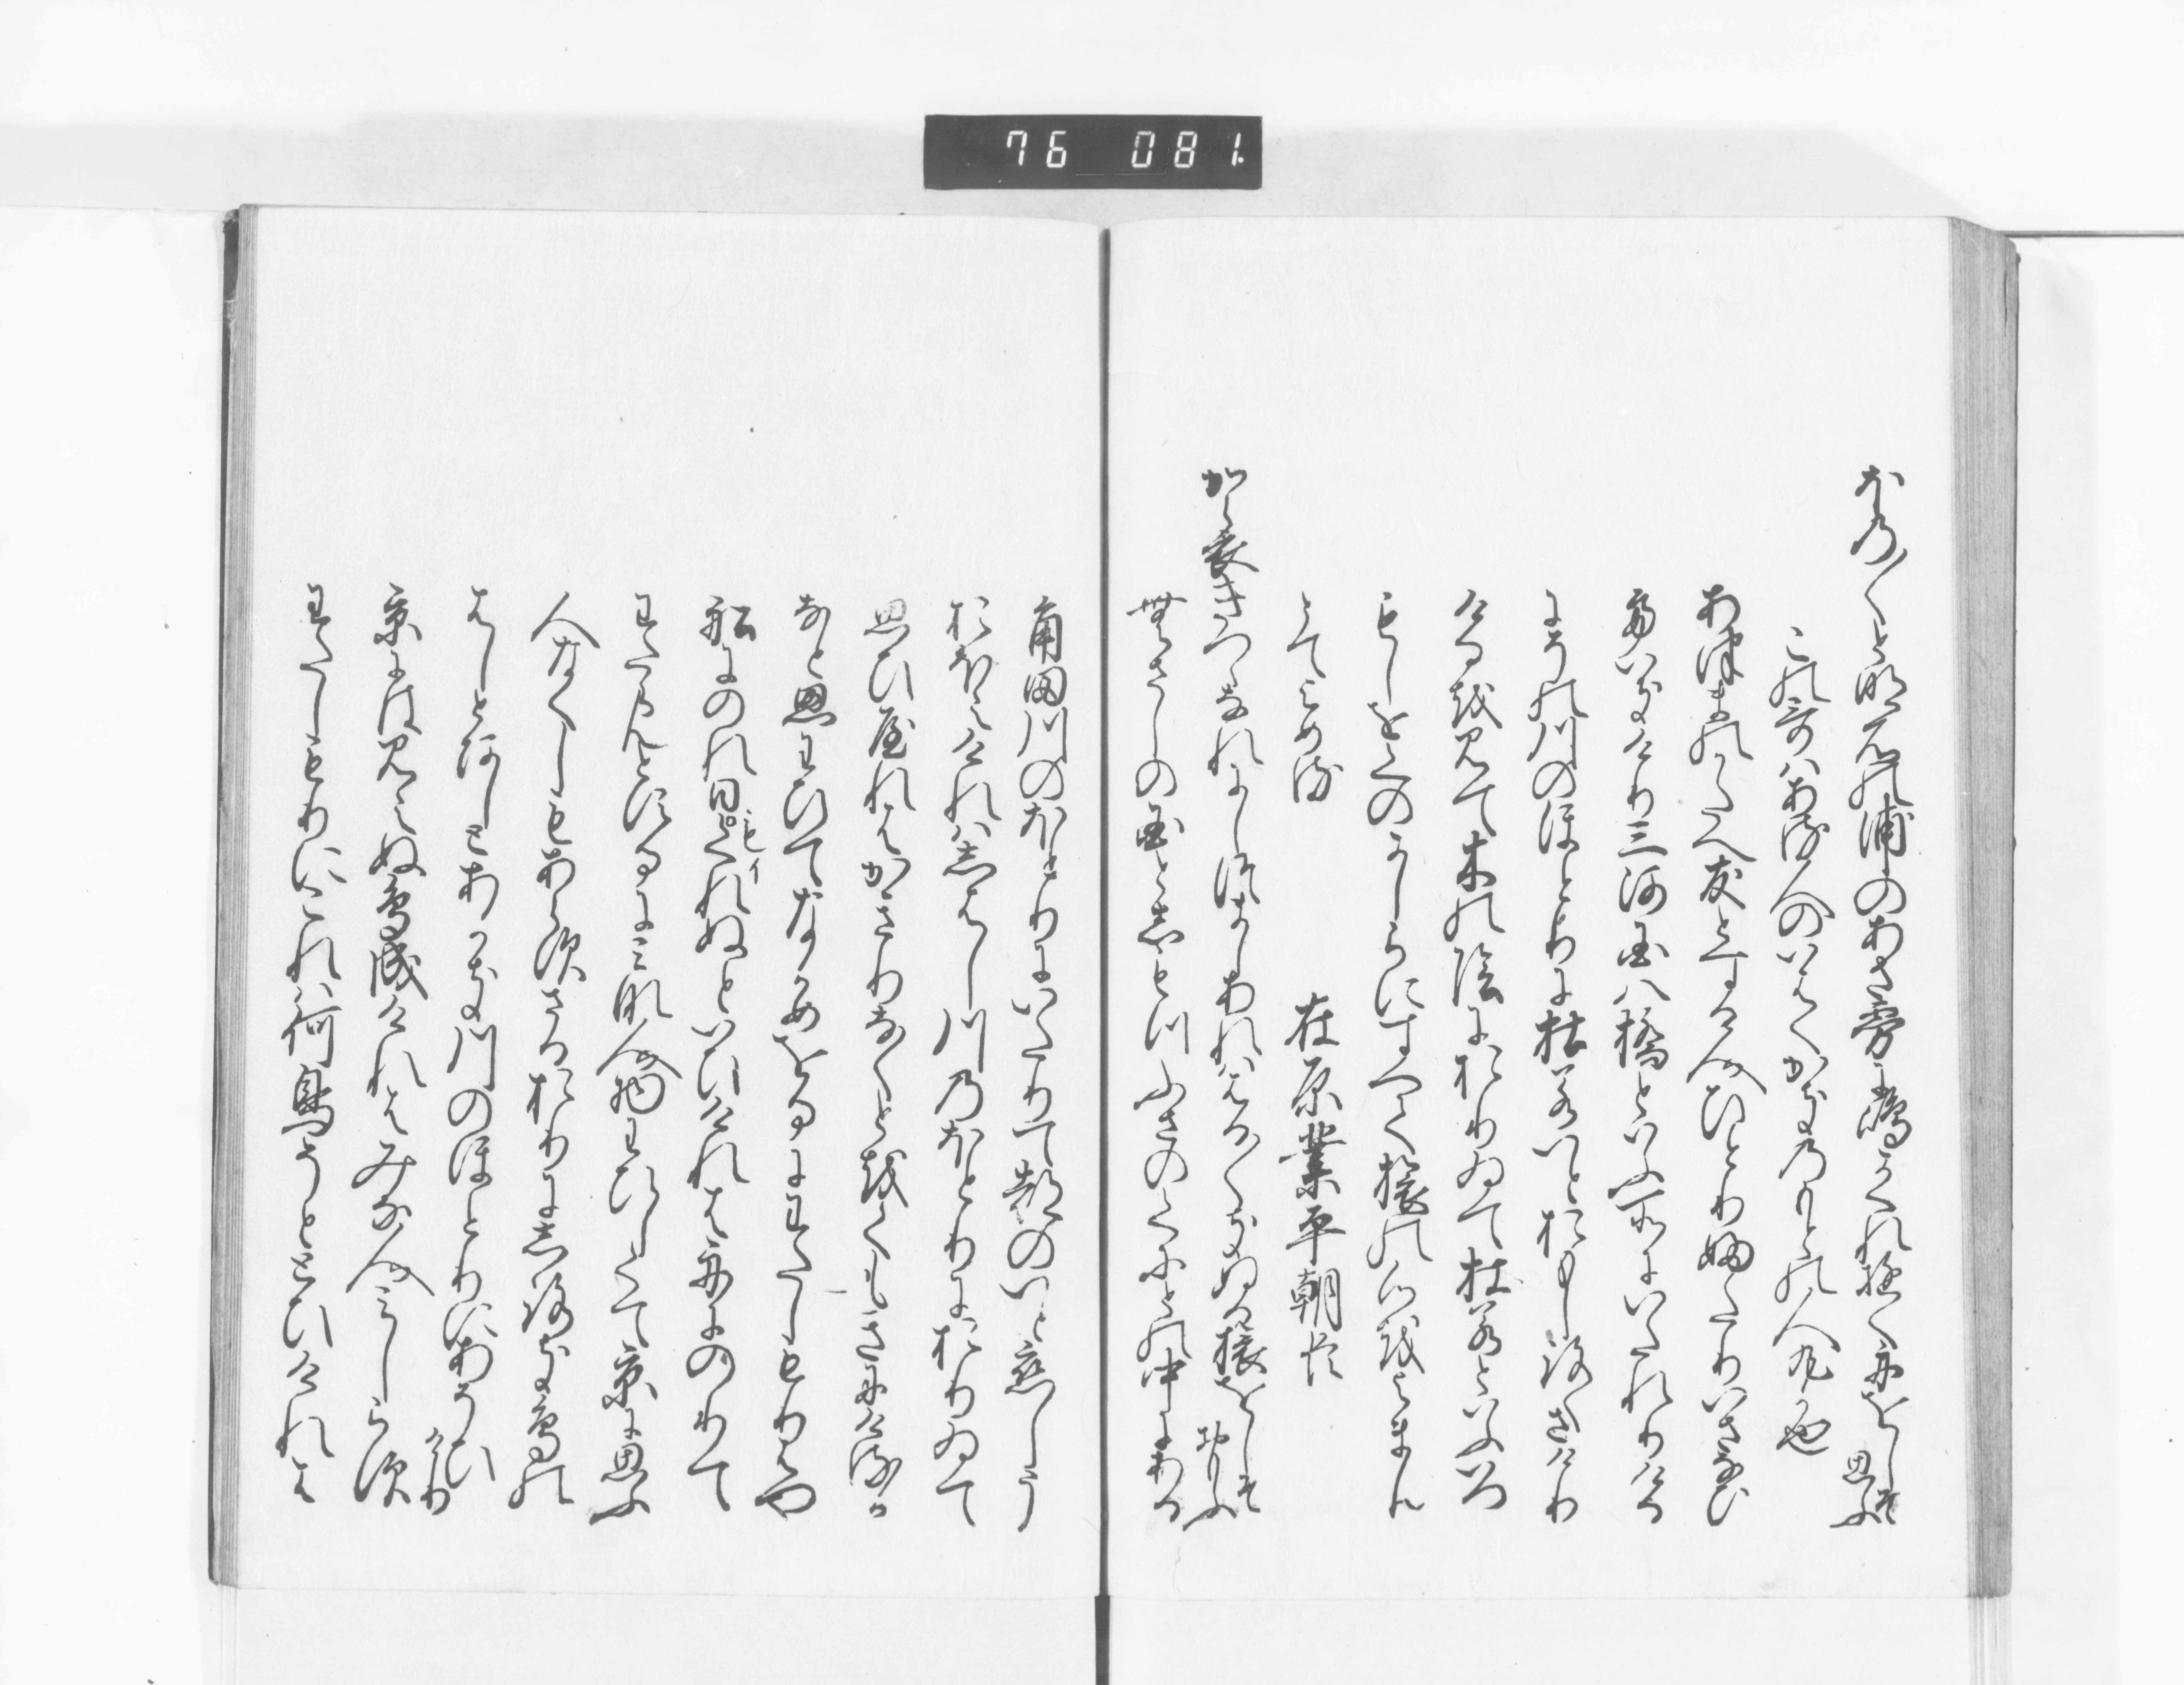 76 081
ほの〳〵と明石の浦のあさ霧に嶋かくれ行く舟をしそ思ふ
この哥はある人のいはくかきのもとの人丸か也
あつまのかたへ友とする人ひとりふたりいさなひ
ていきけり三河国八橋といふ所にいたれりける
にその川のほとりに杜若いとおもしろくさけり
けるを見て木の陰におりゐて杜若といふいつ
もしをくのかしらにすへて旅の心をよまん
とてよめる
在原業平朝臣
から衣きつゝなれにしつましあれははる〳〵きぬる旅をしそおもふ
むさしの国としもつふさのくにとの中にある
角田川のほとりにいたりて都のいと恋しう
おほえけれはしはし川のほとりにおりゐて
思ひやれはかきりなくとをくもきにけるか
なと思わひてなかめをるにわたしもりはや
舩にのれ日くれぬといひけれは舟にのりて
もイ
わたらんとするにみな人物わひしくて京に思ふ
人なくしもあらすさるおりにしろき鳥の
はしとあしとあかき川のほとりにあそひけり
京には見えぬ鳥成けれはみな人みしらす
わたしもりにこれは何鳥そとゝひけれは